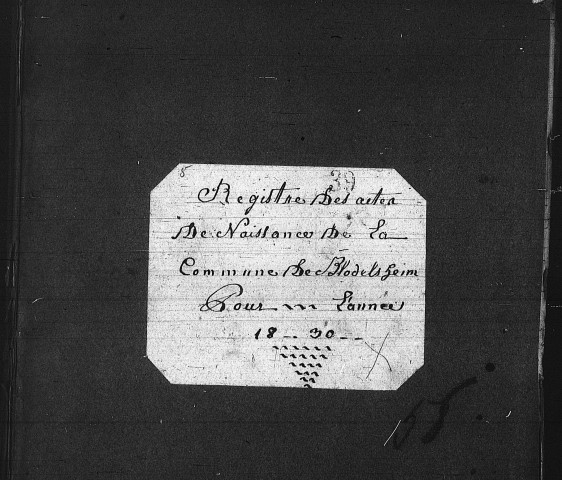 39
Registre Des actes
De Naissance De La
Commune De Blodelsheim
Pour L'année
18 -- 30 --